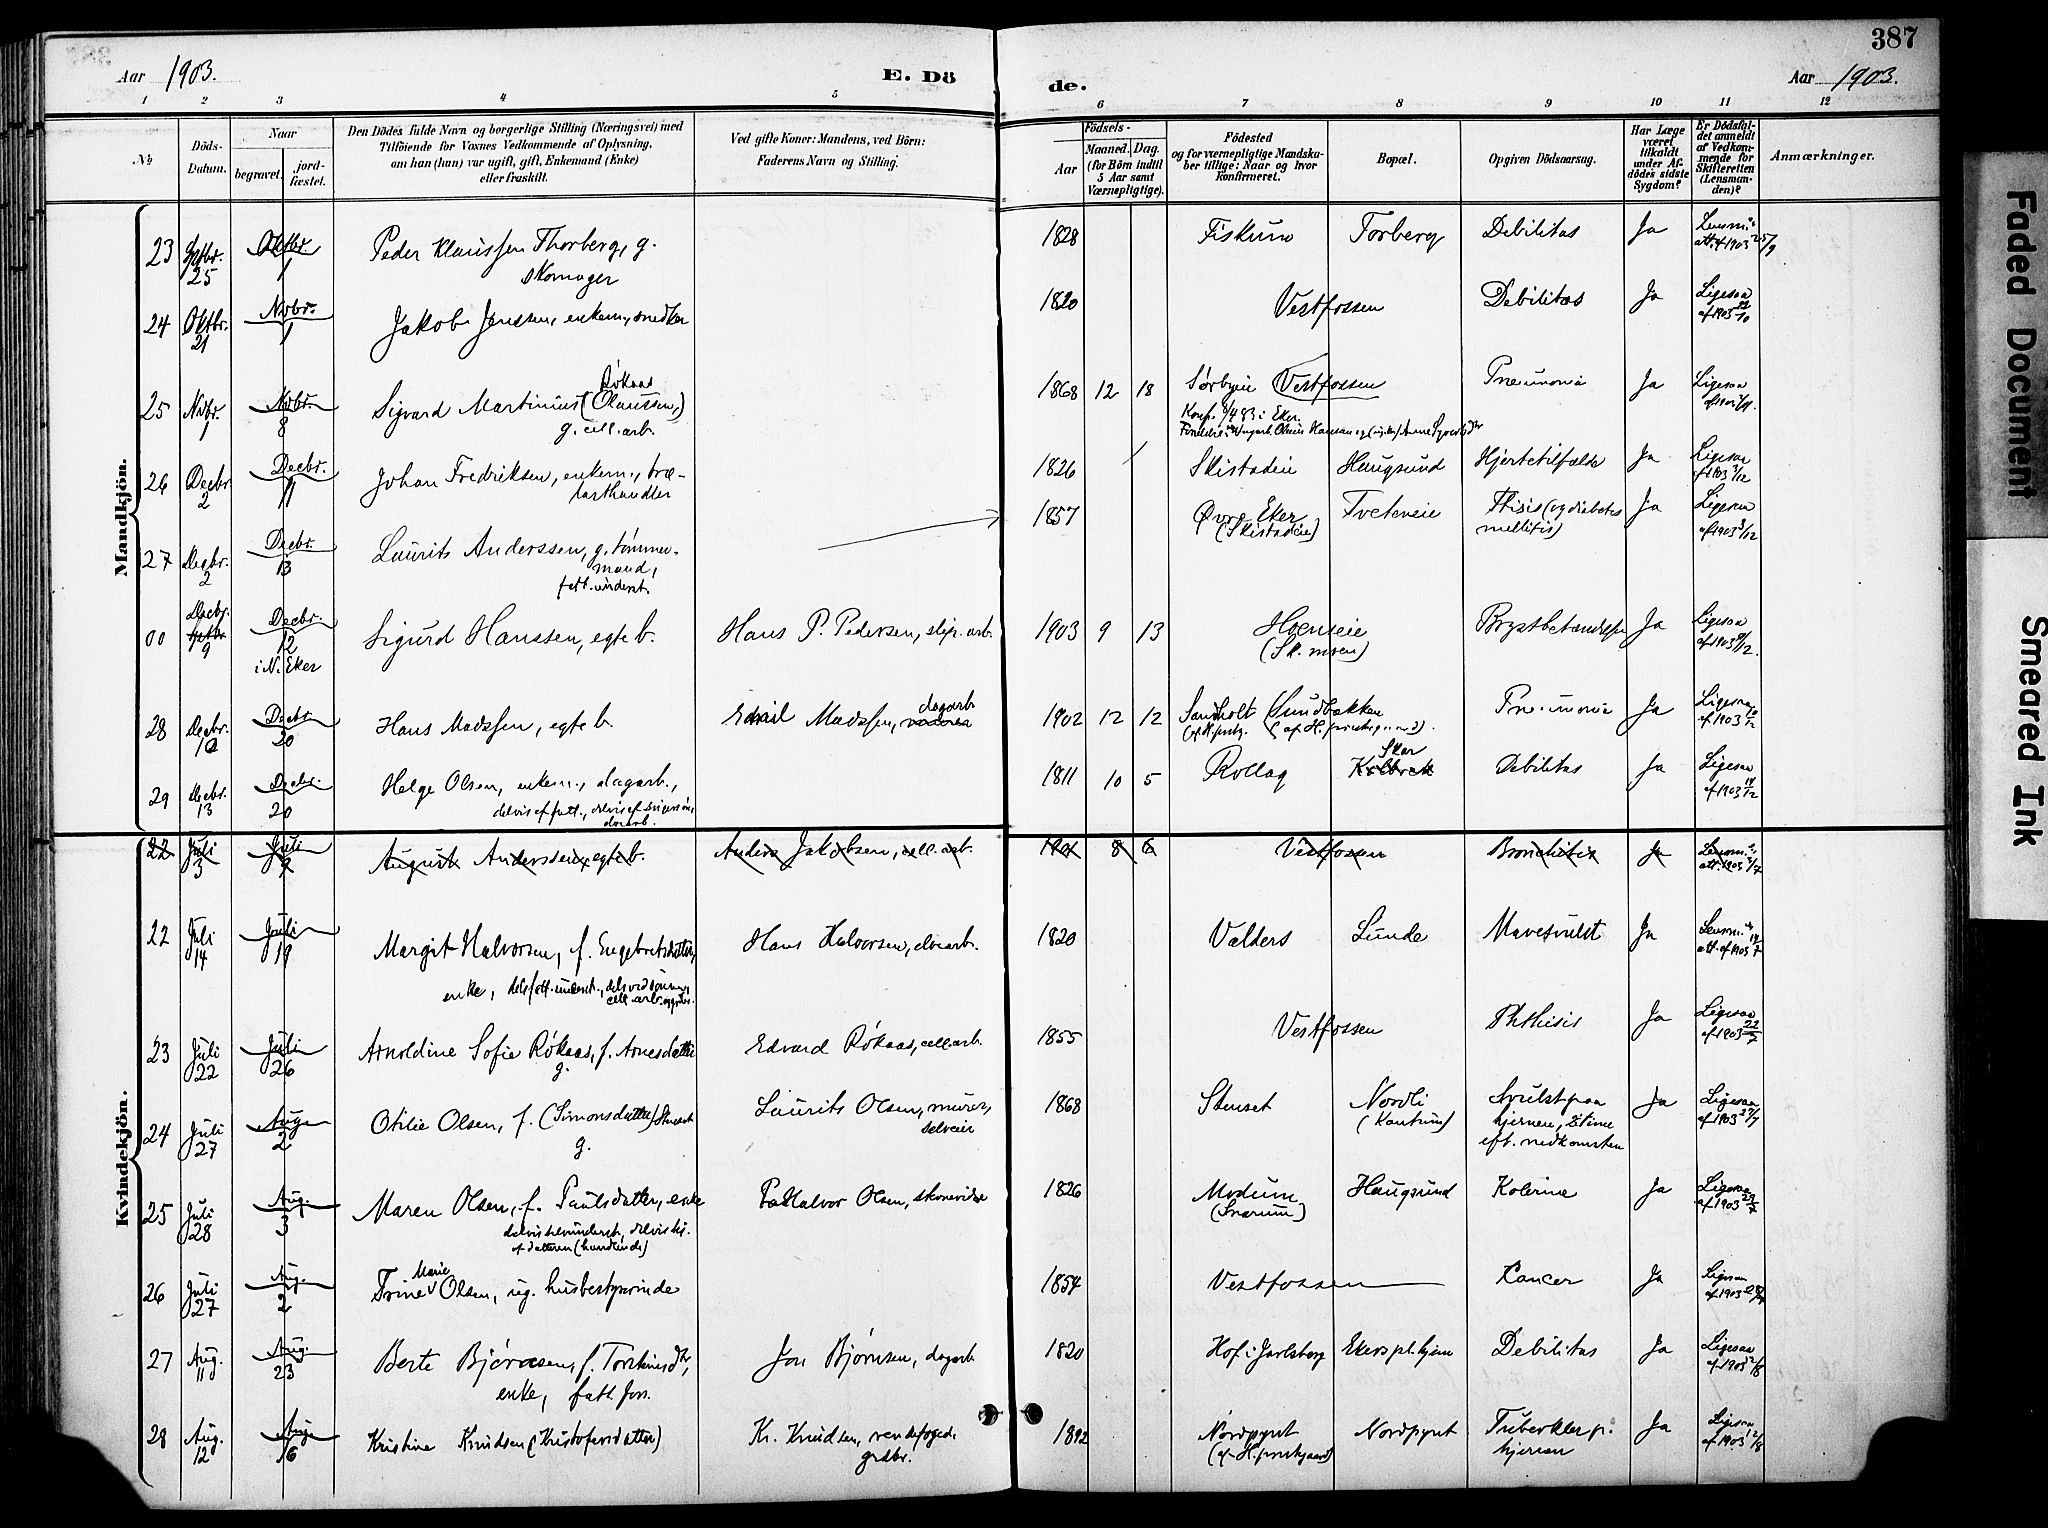 387
Aar 1903.
E. Dö
de.
Aar 1903.
1 2 3 4 5 6 7 8 9 10 11 12
No
Döds-Datum.
Naar
begravet.
jord-fæstet.
Den Dödes fulde Navn og borgerlige Stilling (Næringsvei) med
Tilföiende for Voxnes Vedkommende af Oplysning,
om han (hun) var ugift, gift, Enkemand (Enke)
eller fraskilt.
Ved gifte Koner: Mandens, ved Börn:
Faderens Navn og Stilling.
Födsels-
Aar
Maaned. Dag.
(for Börn indtil
5 Aar samt
Værnepligtige).
Födested
og for værnepligtige Mandska-
ber tillige: Naar og hvor
konfirmeret.
Bopæl.
Opgiven Dödsaarsag.
Har Læge
været
tilkaldt
under Af-
dödes sidste
Sygdom?
Er Dödsfal-
det anmeldt
af Vedkom-
mende for
Skifteretten
(Lensman-
den)?
Anmærkninger.
Mandkjön.
23 Sptbr. 25 Oktbr. 1 Peder Klaussen Thorberg, g. skomager 1828 Fiskum Torberg Debilitas Ja Lensm. att. af 1903 25/9
24 Oktbr. 21 Novbr. 1 Jakob Jenssen, enkem., snedker 1820 Vestfossen Debilitas Ja Ligesaa af 1903 22/10
25 Novbr. 1 Novbr. 8 Sigvard Martinius (Olaussen,) Røkaas g. cell. arb. 1868 12 18 Sørbyeie Vestfossen Pneumonia Ja Ligesaa af 1903
Konf. 83 i Eker.
26 Decbr. 2 Decbr. 11 Johan Fredriksen, enkem., træ-lasthandler 1826 Skistadeie Haugsund Hjertetilfælde Ja Ligesaa af 1903 3/12
27 Decbr. 2 Decbr. 13 Laurits Anderssen, g. tømmer-mand, fatt. underst. 1857 Øvre Eker (Skistadeie) Tveteneie Ftisis (og diabetes mellitis) Ja Ligesaa af 1903 3/12
00 Decbr. 9 Decbr. 12 i N. Eker Sigurd Hanssen, egte b. Hans P. Pedersen, slip. arb. 1903 9 13 Hoenseie (Sk. moen) Brystbetændelse Ja Ligesaa af 1903 9/12.
28 Decbr. 12 Decbr. 20 Hans Madssen, egte b. Madssen, dagarb. 1902 12 12 Sandholt Sundbakken Pneumonia Ja Ligesaa af 1903
29 Decbr. 13 Decbr. 20 Helge Olsen, enkem., dagarb., delvis af fatt., delvis af svigersøn, 1811 10 5 Rollag Skar Debilitas Ja Ligesaa af 1903 14/12
Kvindekjön.
22 Juli 3 Juli August Andersen, egte b. Anders Jakobsen, cell. arb. 1901 8 6 Vestfossen Bronchitis Ja Lensm. att. 1903 3/7
22 Juli 14 Juli 19 Margit Halvorsen, f. Engebretsdatter, enke, dels fatt. underst., Hans Halvorsen, 1820 Valders Lunde Mavesvulst Ja Lensm. att. af 1903 14/7
23 Juli 22 Juli 26 Arnoldine Sofie Røkaas, f. Arnesdatter g. Edvard Røkaas, cell. arb. 1855 Vestfossen Phthisis Ja Ligesaa af 1903 22/7
24 Juli 27 Aug. 2 Otilie Olsen, f. (Simonsdatter) Stenset g. Laurits Olsen, murer, selveier 1868 Stenset Nordli Svulst paa hjernen, 2 time eft. nedkomsten Ja Ligesaa af 1903 27/7
25 Juli 28 Aug. 3 Maren Olsen, f. Paulsdatter, enke af datteren (handlende) Halvor Olsen, 1826 Modum (Snarum) Haugsund Kolerine Ja Ligesaa af 1903 29/7
26 Juli 27 Aug. 2 Trine Marie Olsen, ug. husbestyrerinde 1854 Vestfossen Cancer Ja Ligesaa af 1903 28/7
27 Aug. 11 Aug. 23 Berte Bjørnsen, f. enke, fatt. fors. Jon Bjørnsen, dagarb. 1820 Hof i Jarlsberg Ekers plehjem Debilitas Ja Ligesaa af 1903 12/8
28 Aug. 12 Aug. 16 Kristine Knudsen (Kristofersdatter) Kr. Knudsen, grdbr. 1892 Nordpynt Nordpynt Tuberkler p. hjernen Ja Ligesaa af 1903 12/8
Faded Document
Smeared Ink